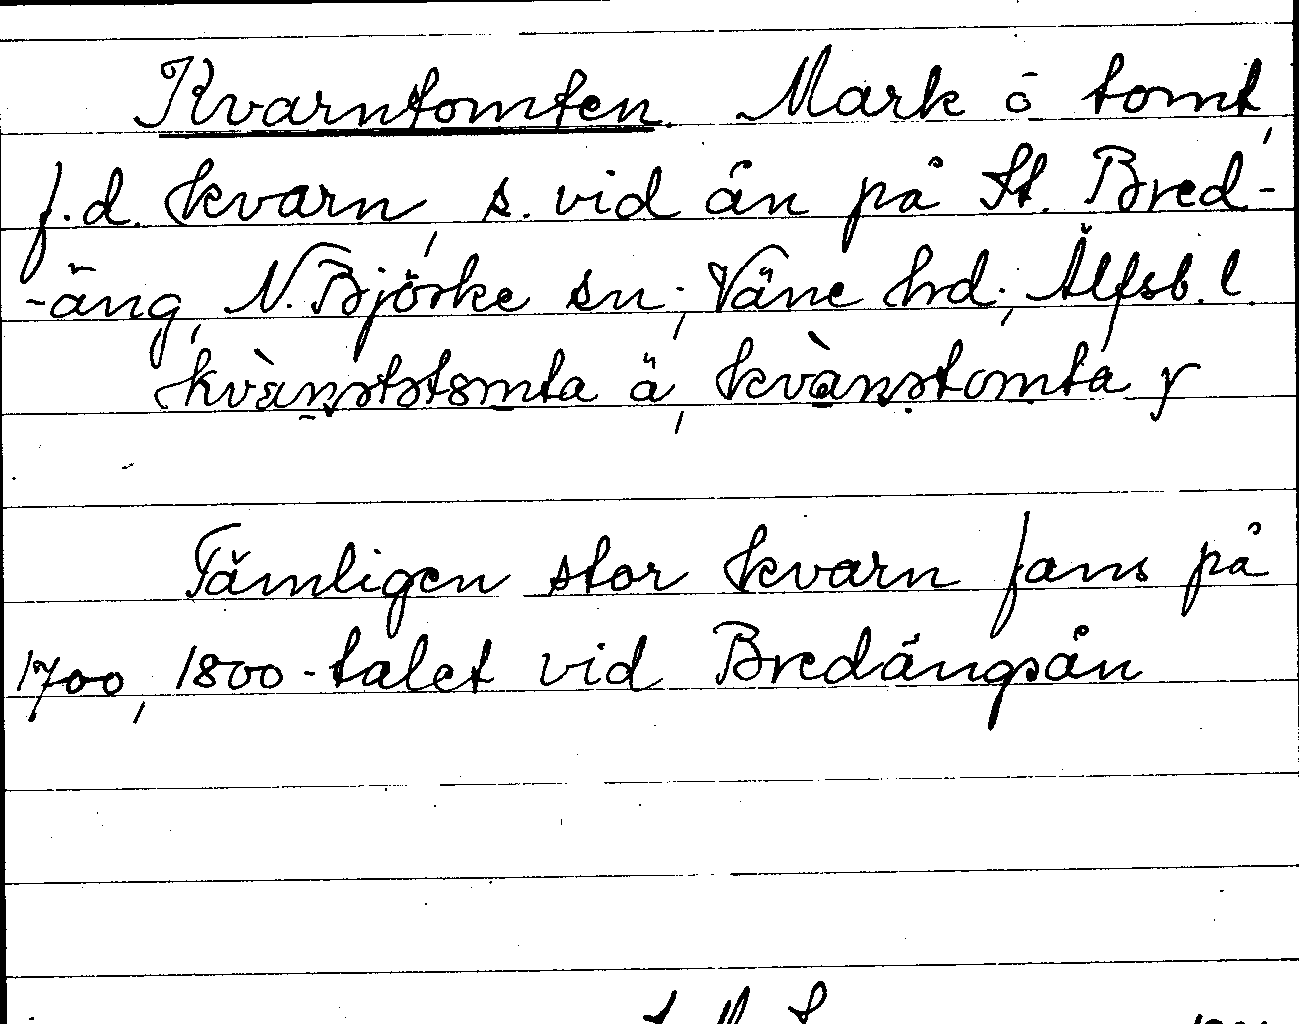 Kvarntomten. Mark ō tomt,
f.d. kvarn, s. vid ån på St. Bred-
-äng, N. Björke sn; Väne hd; Älfsb. l.
kvànststomta ä, kvànstomta y
Tämligen stor kvarn fans på
1700, 1800-talet vid Bredängsån